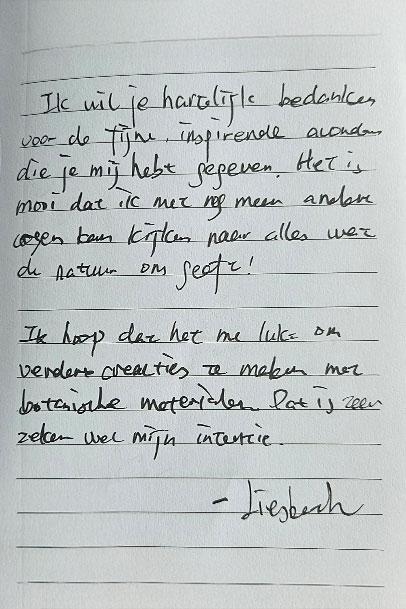 Ik wil je hartelijk bedanken
voor de fijne, inspirende avonden
die je mij hebt gegeven. Het is
mooi dat ik met nog meer andere
ogen kan kijken naar alles wat
de natuur ons geeft!
Ik hoop dat het me lukt om
verder creaties te maken met
botanische materialen. Dat is zeer
zeker wel mijn intentie.
- Liesbeth